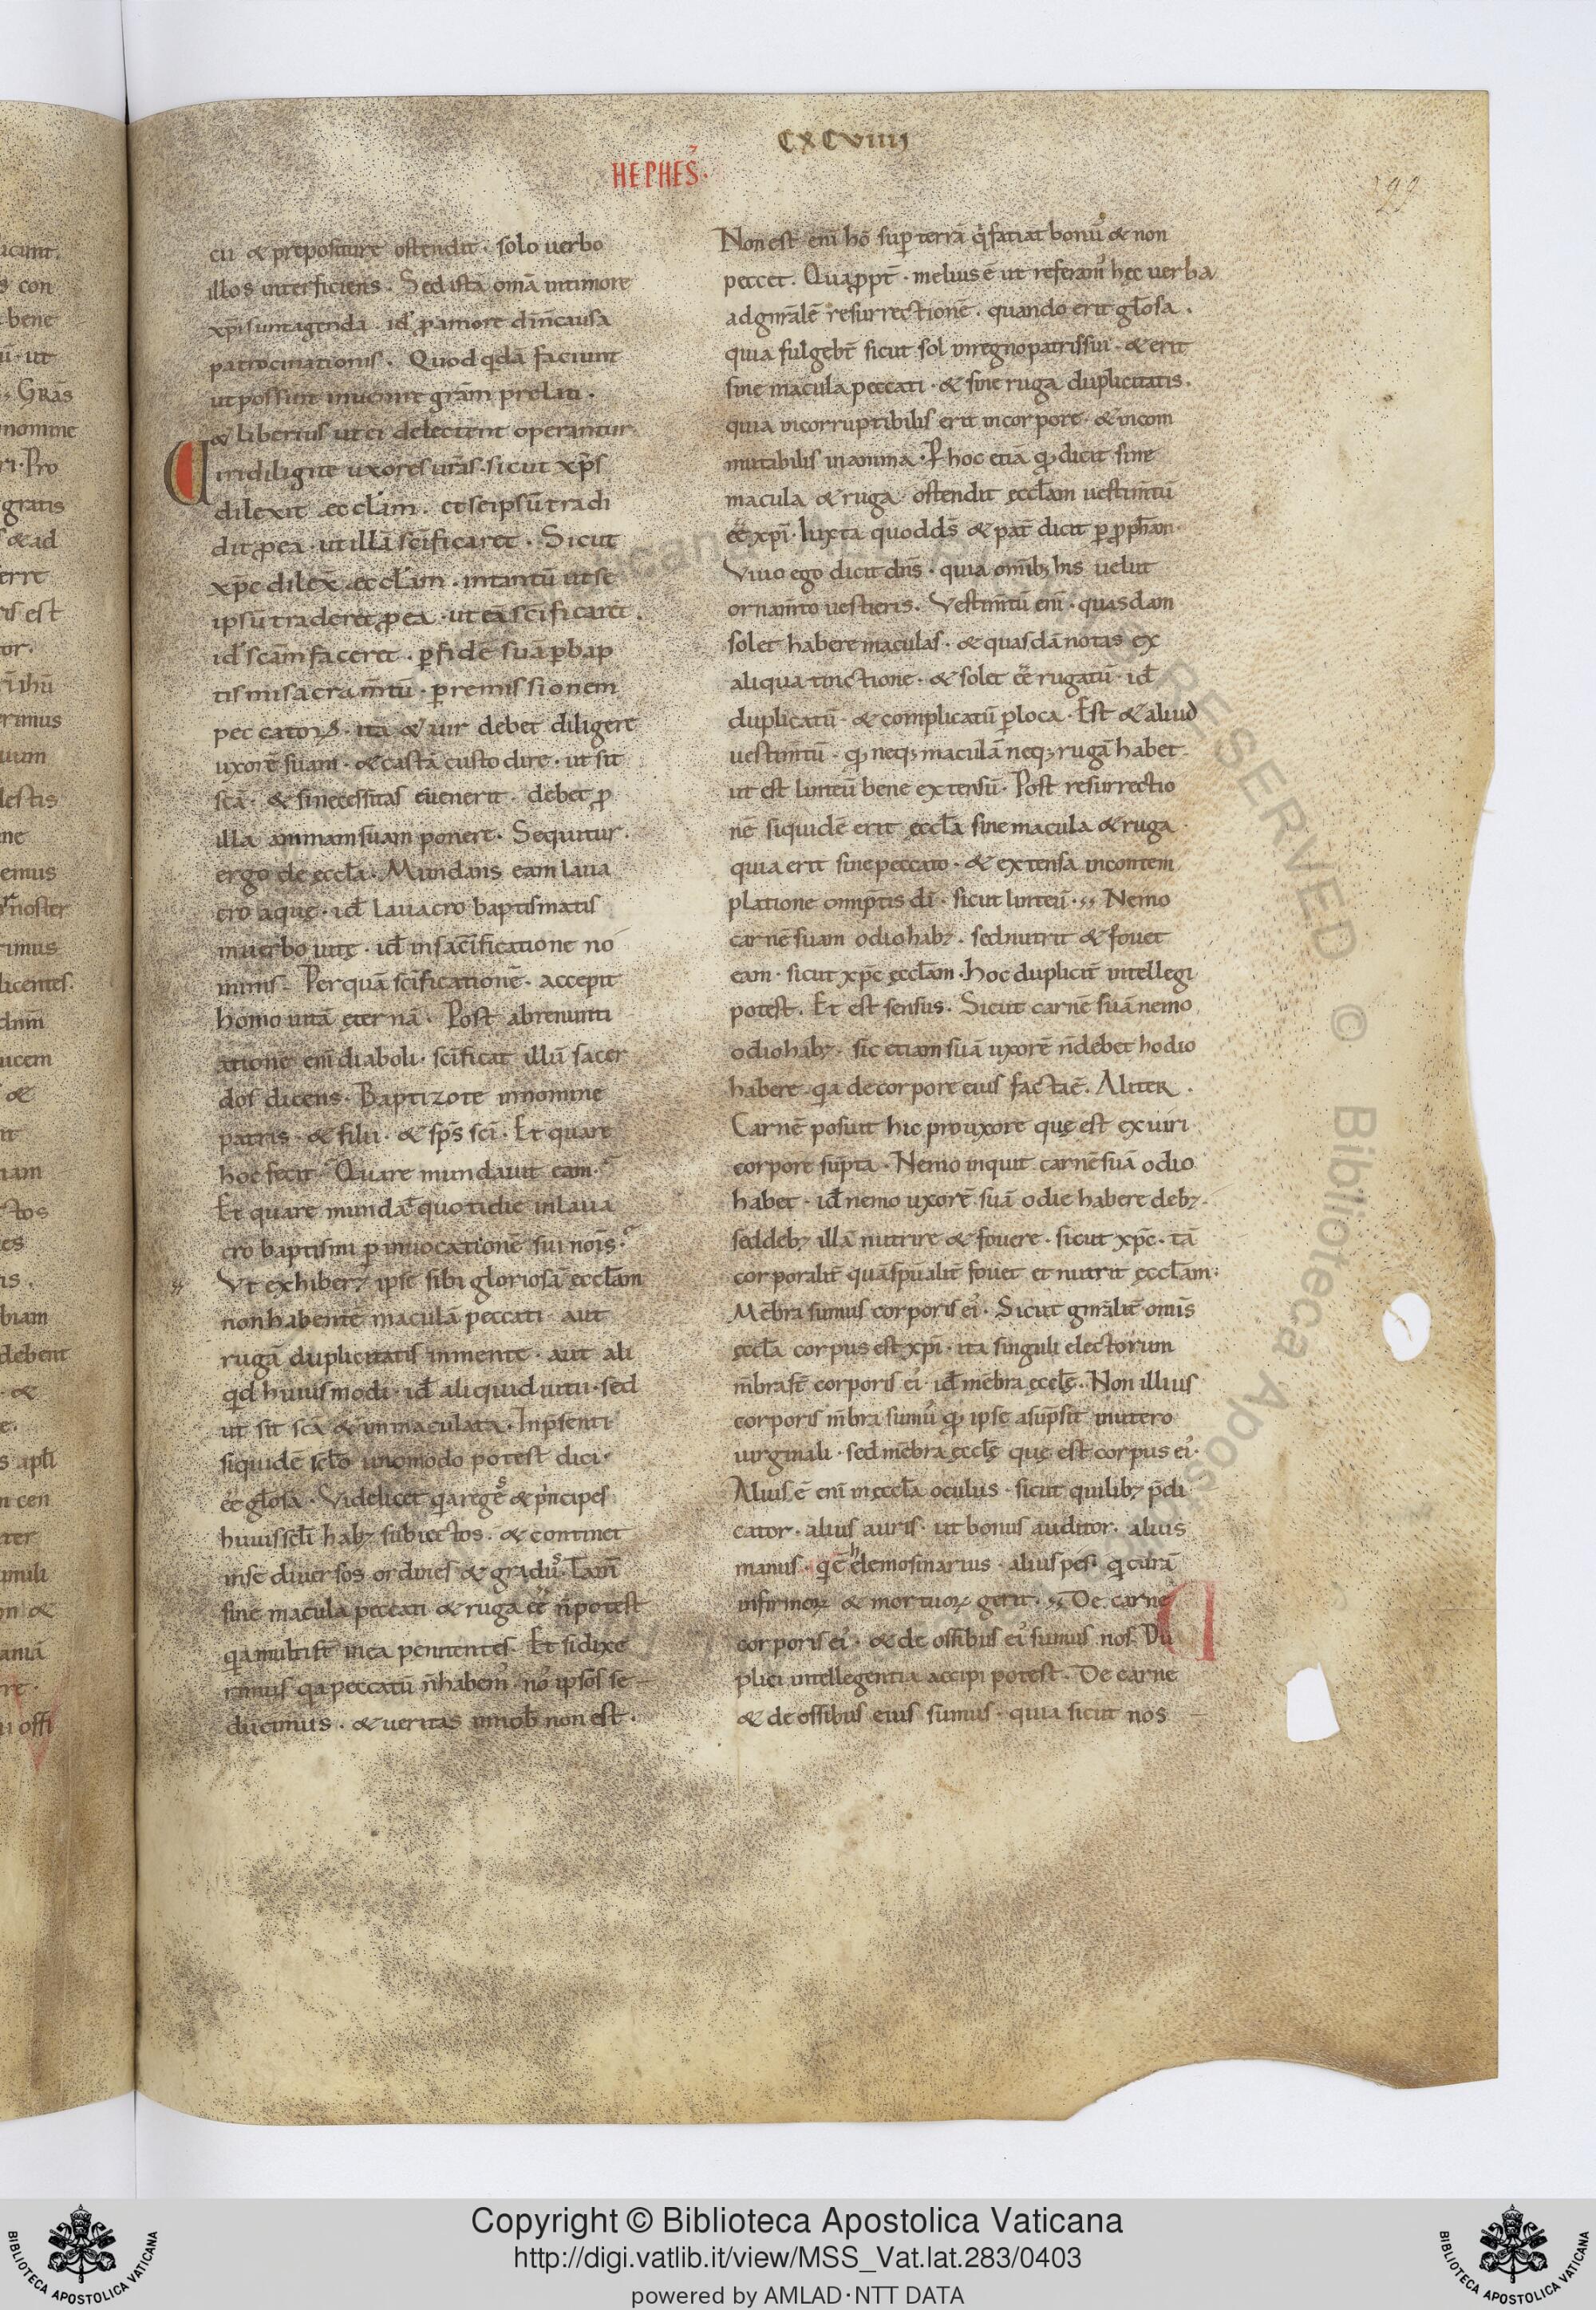 CXCVIIII
HEPHES̄.
299
cū & prepositure ostendit · solo uerbo
illos interficiens. Sed ista om̄a in timore
xp̄i sunt agenda . id ꝓ amore d̄i n̄ causa
patrocinationis. Quod qdā faciunt
ut possint inuenire grām prelati.
& liberius ut ei delectent operantur
Uiri diligite uxores urās · sicut xp̄s
dilexit ęccl̄am . et seipsū tradi
dit ꝓ ea · ut illā sc̄ificaret . Sicut
xp̄c dilex̄ ęccl̄am . intantū ut se
ipsū traderet ꝓ ea · ut eā sc̄ificaret.
id sc̄am faceret . ꝑ fidē suā ꝑ bap
tismi sacramtū · ꝑ remissionem
peccatoꝝ · ita & uir debet diligere
uxorē suam · & castā custodire · ut sit
sc̄a · & si necessitas euenerit debet ꝓ
illa animam suam ponere. Sequitur.
ergo de ęccl̄a. Mundans eam laua
cro aquę · id lauacro baptismatis
in uerbo uitę · id in sac̄ificatione no
minis. Per quā sc̄ificationē · accepit
homo uitā eternā. Post abrenunti
ationē eni diaboli · sc̄ificat illū sacer
dos dicens. Baptizo te in nomine
patris · & filii · & sp̄s sc̄i. Et quare
hoc fecit Quare mundauit eam.
Et quare mundat̄ quotidie in laua
cro baptismi ꝑ inuocationē sui nōis.
Vt exhiberꝫ ipse sibi gloriosā ęccl̄am
non habentē maculā peccati · aut
rugā duplicitatis in mente · aut ali
qd huiusmodi · id aliquid uitii · sed
ut sit sc̄a & inmaculata. In p̄senti
siquidē scl̄o uno modo potest dici ·
eē glosa. Videlicet qa reges & principes
huius scl̄i habꝫ subiectos . & continet
in se diuersos ordines & gradus. Tam̄
sine macula peccati & ruga eē n̄ potest
qa multi st̄ in ea penitentes. Et si dixe
rimus qa peccatū n̄ habem' · nos ipsos se
ducimus . & ueritas in nob̄ non est.
Non est eni hō sup terrā q fatiat bonū & non
peccet. Quappt̄ · melius ē ut referam' hęc uerba
ad gn̄ralē resurrectionē . quando erit glosa.
quia fulgebt̄ sicut sol in regno patris sui · & erit
sine macula peccati · & sine ruga duplicitatis.
quia incorruptibilis erit in corpore · & incom
mutabilis in anima. P hoc etiā qd dicit sine
macula & ruga ostendit ęccl̄am uestimtū
eē xp̄i · luxta quod d̄s & pat̄ dicit ꝑ ꝓphā̄m ·
Viuo ego dicit dn̄s · quia omnibꝫ his uelut
ornam̄to uestieris. Vestim̄tū eni · quasdam
solet habere maculas · & quasdā notas ex
aliqua tinctione · & solet eē rugatū · id
duplicatū · & complicatū ꝑ loca. Est & aliud
uestimtū · qd neqꝫ maculā neqꝫ rugā habet
ut est linteū bene extensū. Post resurrectio
nē siquidē erit ęccl̄a sine macula & ruga
quia erit sine peccato · & extensa in contem
platione omnp̄tis d̄i · sicut linteū. Nemo
carnē suam odio habꝫ · sed nutrit & fouet
eam · sicut xp̄c ęccl̄am. Hoc duplicit̄ intellegi
potest. Et est sensus. Sicut carnē suā nemo
odio habꝫ · sic etiam suā uxorē n̄ debet hodio
habere qa de corpore eius facta ē. Aliter.
Carnē posuit hic pro uxore quę est ex uiri
corpore sūpta. Nemo inquit carnē suā odio
habet · id nemo uxorē suā odie habere debꝫ.
sed debꝫ illā nutrire & fouere · sicut xp̄c · tā
corporalit̄ quā spūalit̄ fouet et nutrit ęccl̄am:
Mēbra sumus corporis ei'. Sicut gn̄ralit̄ omīs
ęccl̄a corpus est xp̄i · ita singuli electorum
mbra st̄ corporis ei' id mēbra ęccl̄ę. Non illius
corporis mbra sum' qd ipse asūpsit in utero
uirginali · sed mēbra ęccl̄ę quę est corpus ei'.
Alius ē eni in ęccl̄a oculus · sicut quilibꝫ p̄di
cator · alius auris · ut bonus auditor · alius
manus · q̄ ē helemosinarius · alius pes · q curā
infirmoꝝ & mortuoꝝ gerit. De carne
corporis ei' · & de ossibus ei' sumus nos. Du
plici intellegentia accipi potest. De carne
& de ossibus eius sumus · quia sicut nos
Copyright © Biblioteca Apostolica Vaticana
http://digi.vatlib.it/view/MSS_Vat.lat.283/0403
powered by AMLAD·NTT DATA